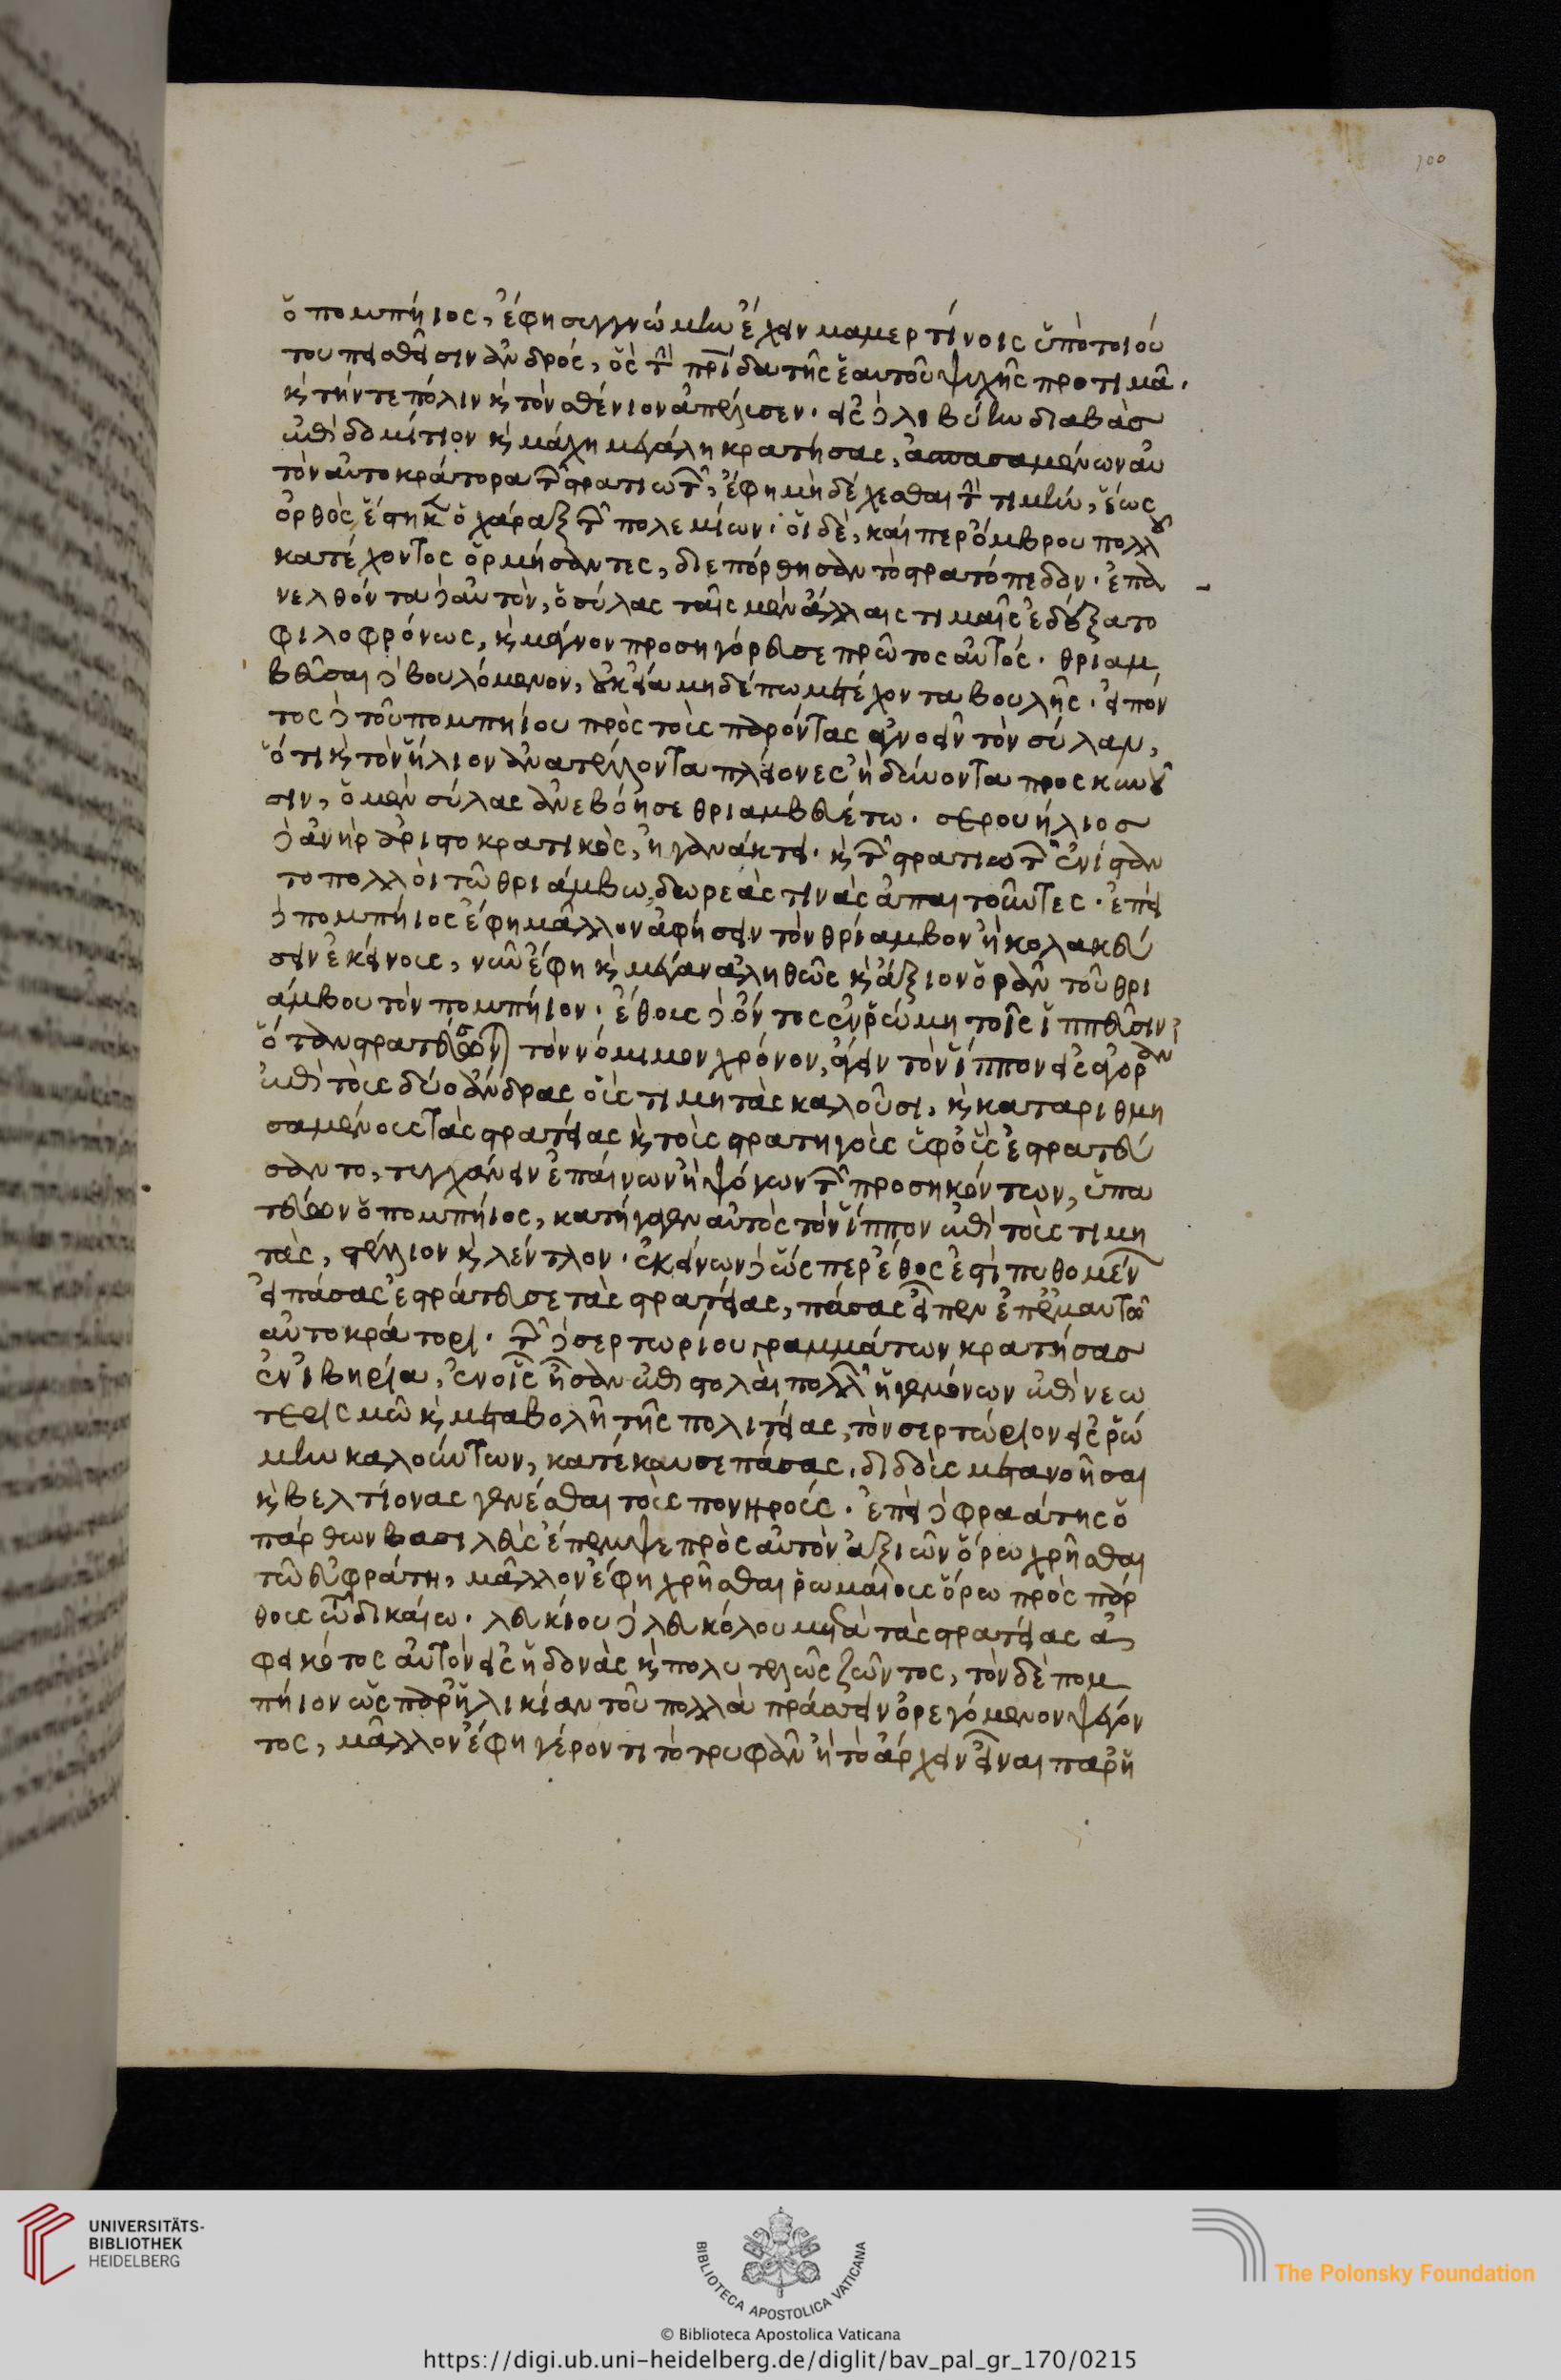 100
ὁ πομπήιος, ἔφη συγγνώμην ἔχειν μαμερτίνοις ὑπὸ τοιού
του πεισθεῖσιν ἀνδρός, ὃς τὴν πατρίδα τῆς ἑαυτοῦ ψυχῆς προτιμᾶ.
κ τήν τε πόλιν κ τὸν σθένιον ἀπέλυσεν. εἰς δὲ λιβύην διαβὰσ
ἐπὶ δομίτιον κ μάχη μεγάλη κρατήσας, ἀσπασαμένων αὐ
τὸν αὐτοκράτορα τῶν στρατιωτῶν, ἔφη μὴ δέχεσθαι τὴν τιμήν, ἕως
ὀρθὸς ἕστηκεν ὁ χάραξ τῶν πολεμίων. οἱ δέ, καίπερ ὄμβρου πολλοῦ
κατέχοντος ὁρμήσαντες, διεπόρθησαν τὸ στρατόπεδον. ἐπα
νελθόντα δὲ αὐτὸν, ὁ σύλας ταῖς μὲν ἄλλαις τιμαῖς ἐδέξατο
φιλοφρόνως, κ μάγνον προσηγόρευσε πρῶτος αὐτός. θριαμ
βεῦσαι δὲ βουλόμενον, οὐκ εἴα μηδέπω μετέχοντα βουλῆς. εἰπόν
τος δὲ τοῦ πομπηίου πρὸς τοὺς παρόντας ἀγνοεῖν τὸν σύλαν,
ὅτι κ τὸν ἥλιον ἀνατέλλοντα πλείονες ἢ δύνοντα προσκυνοῦ
σιν, ὁ μὲν σύλας ἀνεβόησε θριαμβευέτω. σερουήλιοσ
δὲ ἀνὴρ ἀριστοκρατικὸς, ἠγανάκτει. κ τῶν στρατιωτῶν ἐνίσταν
το πολλοὶ τῶ θριάμβω, δωρεάς τινας ἀπαιτοῦντες. ἐπεὶ
δὲ πομπήιος ἔφη μᾶλλον ἀφήσειν τὸν θρίαμβον ἢ κολακεύ
σειν ἐκείνους, νῦν ἔφη κ μέγαν ἀληθῶς κ ἄξιον ὁρᾶν τοῦ θρι
άμβου τὸν πομπήιον. ἔθους δὲ ὄντος ἐν ῥώμη τοῖς ἱππεῦσιν,
ὅταν στρατεύσωνται τὸν νόμιμον χρόνον, ἄγειν τὸν ἵππον εἰς ἀγορὰν
ἐπὶ τοὺς δύο ἄνδρας οὓς τιμητὰς καλοῦσι, κ καταριθμη
σαμένους τὰς στρατείας κ τοὺς στρατηγοὺς ὑφ' οἷς ἐστρατεύ
σαντο, τυγχάνειν ἐπαίνων ἢ ψόγων τῶν προσηκόντων, ὑπα
τεύων ὁ πομπήιος, κατήγαγεν αὐτὸς τὸν ἵππον ἐπὶ τοὺς τιμη
τὰς, γέλλιον κ λέντλον. ἐκείνων δὲ ὥσπερ ἔθος ἐστὶ πυθομένων
εἰ πάσας ἐστράτευσε τὰς στρατείας, πάσας εἶπεν ἐπ' ἐμαυτῶ
αὐτοκράτορι. τῶν δὲ σερτωρίου γραμμάτων κρατήσασ
ἐν ἰβηρία, ἐν οἷς ἦσαν ἐπιστολαὶ πολλῶν ἡγεμόνων ἐπὶ νεω
τερισμῶ κ μεταβολῆ τῆς πολιτείας, τὸν σερτώριον εἰς ῥώ
μην καλούντων, κατέκαυσε πάσας, διδοὺς μετανοῆσαι
κ βελτίονας γενέσθαι τοὺς πονηρούς. ἐπεὶ δὲ φραάτης ὁ
πάρθων βασιλεὺς ἔπεμψε πρὸς αὐτὸν ἀξιῶν ὅρω χρῆσθαι
τῶ εὐφράτη, μᾶλλον ἔφη χρῆσθαι ῥωμαίους ὅρω πρὸς πάρ
θους τῶ δικαίω. λευκίου δὲ λευκόλου μετὰ τὰς στρατείας ἀ
φεικότος αὑτὸν εἰς ἡδονὰς κ πολυτελῶς ζῶντος, τὸν δὲ πομ
πήιον ὡς παρ' ἡλικίαν τοῦ πολλὰ πράσσειν ὀρεγόμενον ψέγον
τος, μᾶλλον ἔφη γέροντι τὸ τρυφᾶν ἢ τὸ ἄρχειν εἶναι παρ' ἡ
UNIVERSITÄTS-
BIBLIOTHEK
HEIDELBERG
BIBLIOTECA APOSTOLICA VATICANA
The Polonsky Foundation
© Biblioteca Apostolica Vaticana
https://digi.ub.uni-heidelberg.de/diglit/bav_pal_gr_170/0215